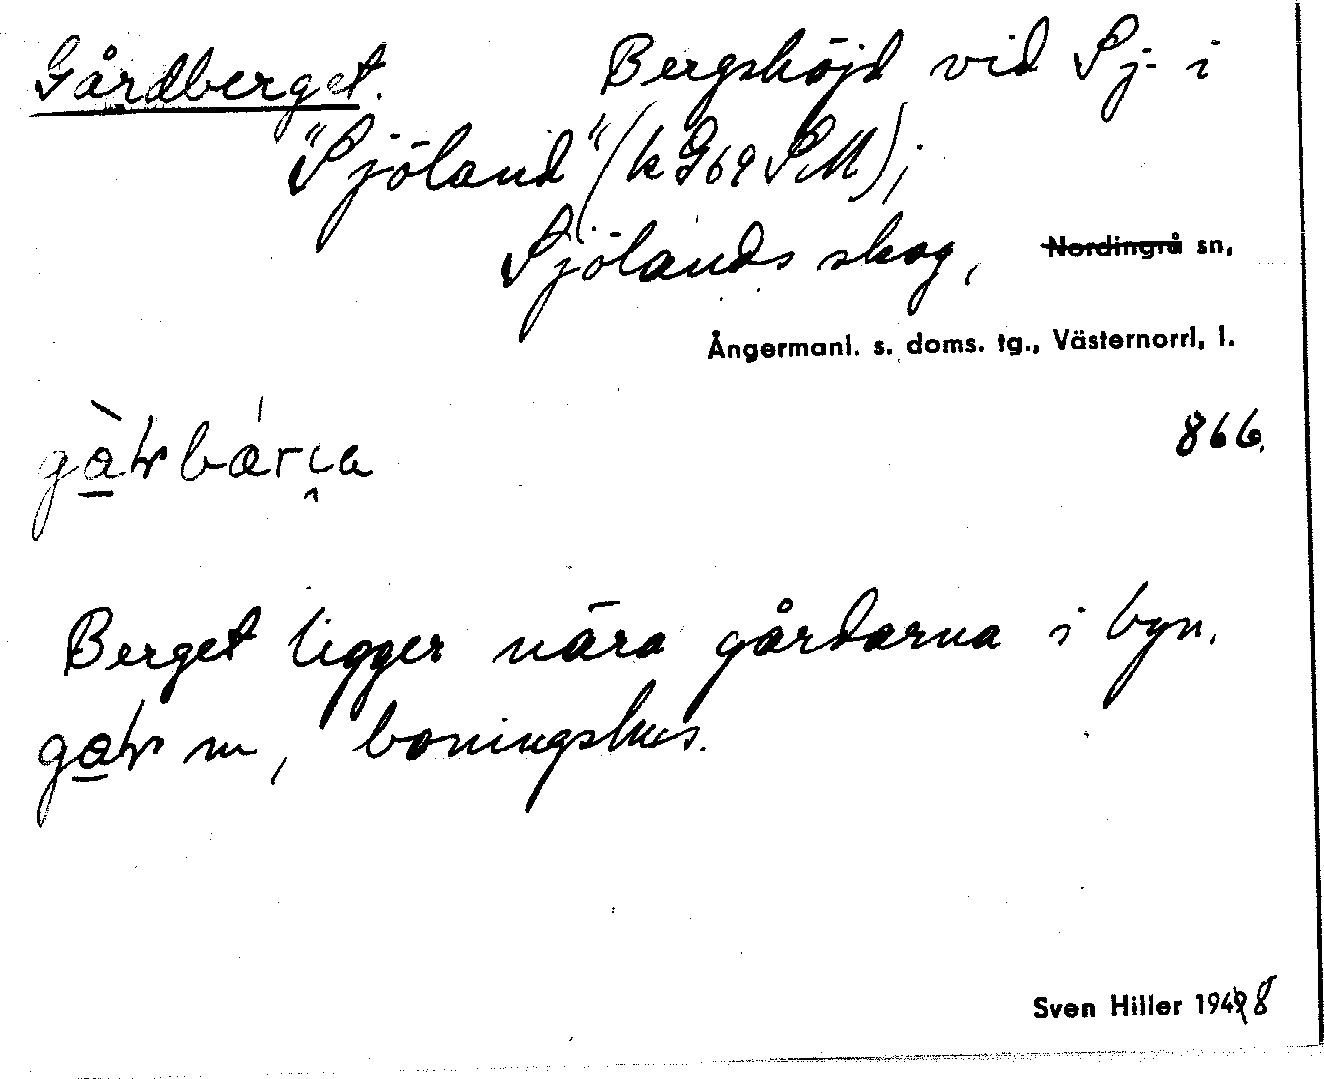 Gårdberget. Bergshöjd vid Sj- i
"Sjöland" (k G69 SM);
Sjölands skog, Nordingrå sn,
Ångermanl. s. doms. tg., Västernorrl. l.
866.
Berget ligger nära gårdarna i byn.
m, boningshus.
Sven Hiller 1948